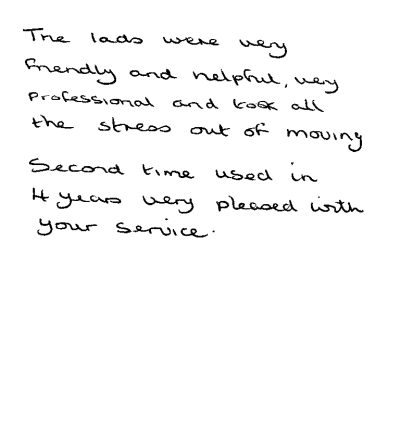 The lads were very
friendly and helpful, very
professional and took all
the stress out of moving
Second time used in
4 years very pleased with
your service.